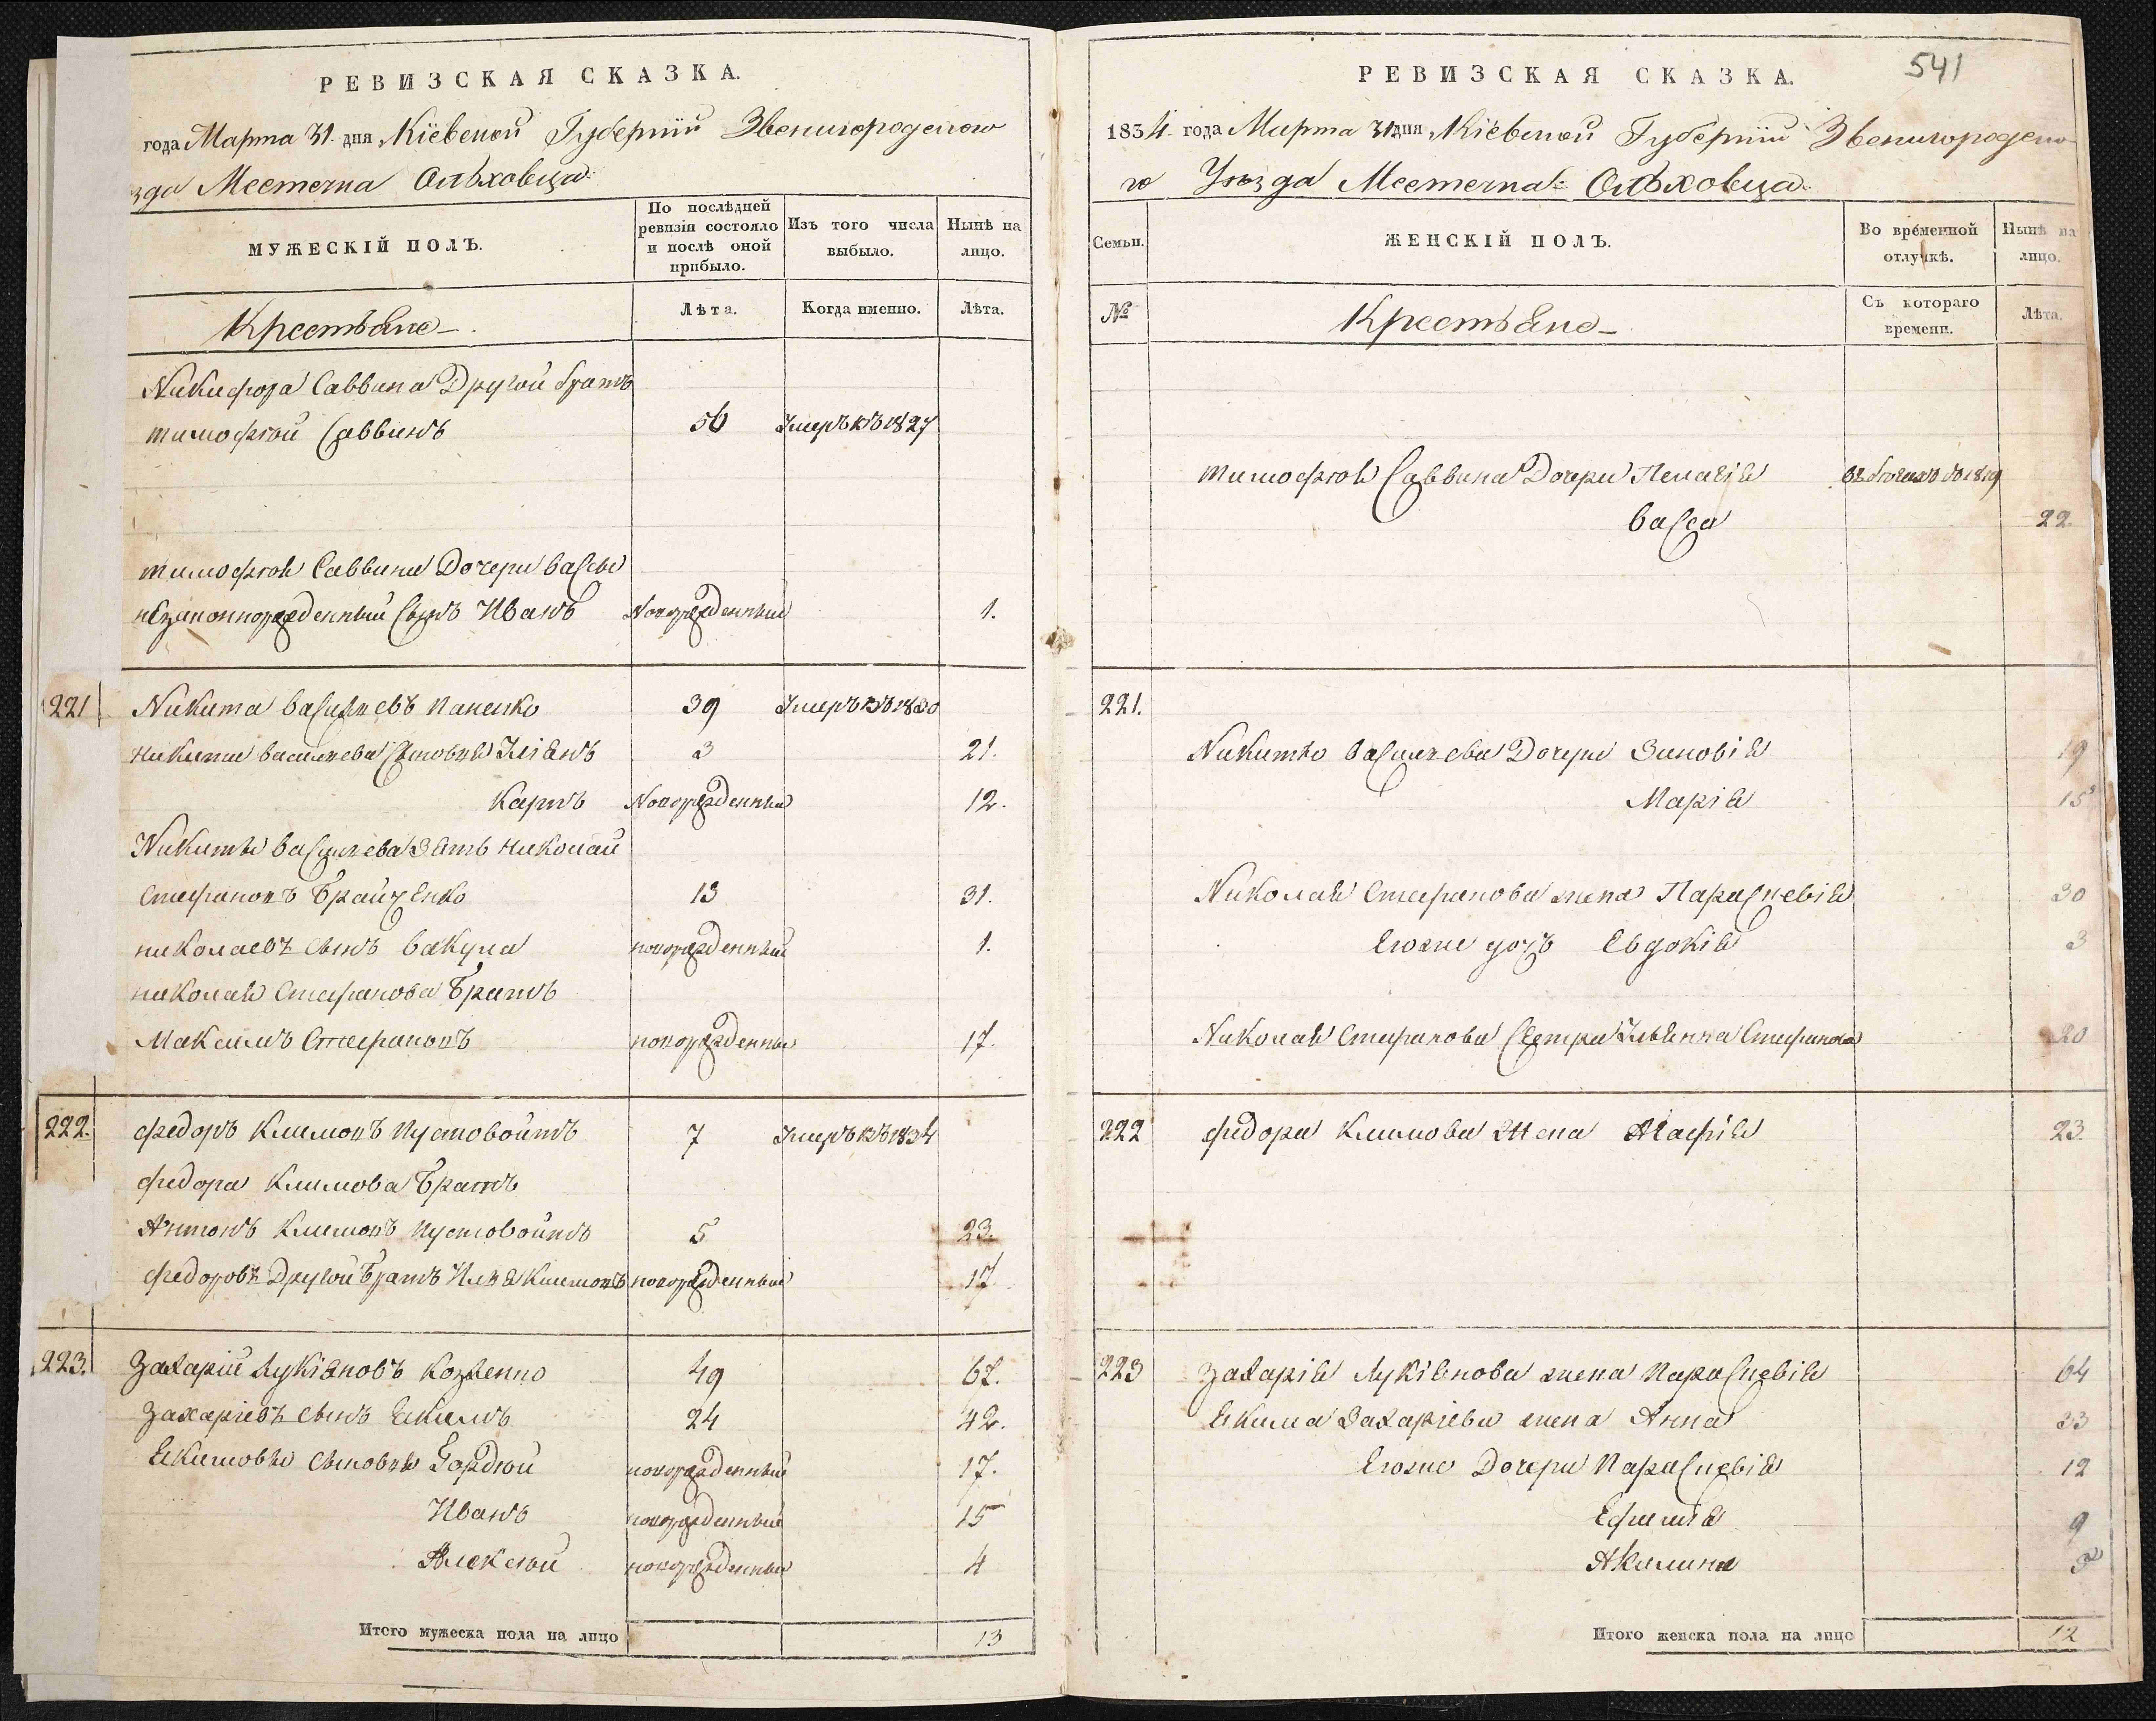 РЕВИЗСКАЯ СКАЗКА.
года Марта 31. дня Кіевской Губерніи Звенигородского
зда Местечка Ольховца.
МУЖЕСКІЙ ПОЛЪ.
По послѣдней ревизіи состояло и послѣ оной прибыло.
Изъ того числа выбыло.
Нынѣ на лицо.
Крестьяне
Лѣта.
Когда именно.
Лѣта.
Никифора Саввина Другой братъ
тимофѣй Саввинъ 56 Умеръ въ 1827
тимофѣя Саввина Дочери васы
незаконнорожденный сынъ Иванъ Новорожденный 1.
221 Никита васильевъ Паненко 39 Умеръ въ 1830
никиты васильева сыновья Ульянъ 3 21.
Карпъ Новорожденный 12.
Никиты васильева Зять николай
Стефановъ Брайченко 13 31.
николаевъ сынъ вакула новорожденный 1.
николая Стефанова Братъ
Максимъ Стефановъ новорожденный 17.
222. федоръ Климовъ Пустовойтъ 7 Умеръ въ 1834
федора Климова Братъ
Антонъ Климовъ Пустовойтъ 5 23.
федоровъ Другой Братъ Илья Климовъ новорожденный 17
223. Захарій Лукіяновъ Козленко 49 67.
Захаріевъ сынъ Екимъ 24 42.
Екимовы сыновья Гордѣй новорожденный 17.
Иванъ новорожденный 15
Алексѣй новорожденный 4
Итого мужеска пола на лицо 13
541
РЕВИЗСКАЯ СКАЗКА.
1834 года Марта 31 дня Кіевской Губерніи Звенигородско
го Уѣзда Местечка Ольховца.
Семьи.
ЖЕНСКІЙ ПОЛЪ.
Во временной отлучкѣ.
Нынѣ на лицо.
№
Крестьяне
Съ котораго времени.
Лѣта.
тимофѣя Саввина Дочери Пелагія въ бегахъ съ 1819
васса 22.
221.
Никиты васильева Дочери Зиновія 19
Марія 15
Николая Стефанова жена Параскевія 30
Егоже дочь Евдокія 3
Николая Стефанова Сестра Ульянна Стефанова 20
222 федора Климова жена Агафія 23.
223 Захарія Лукіянова жена Параскевія 64
Екима Захаріева жена Анна 33
Егоже Дочери Параскевія 12
Ефимія 9
Акилина
Итого женска пола на лицо 12